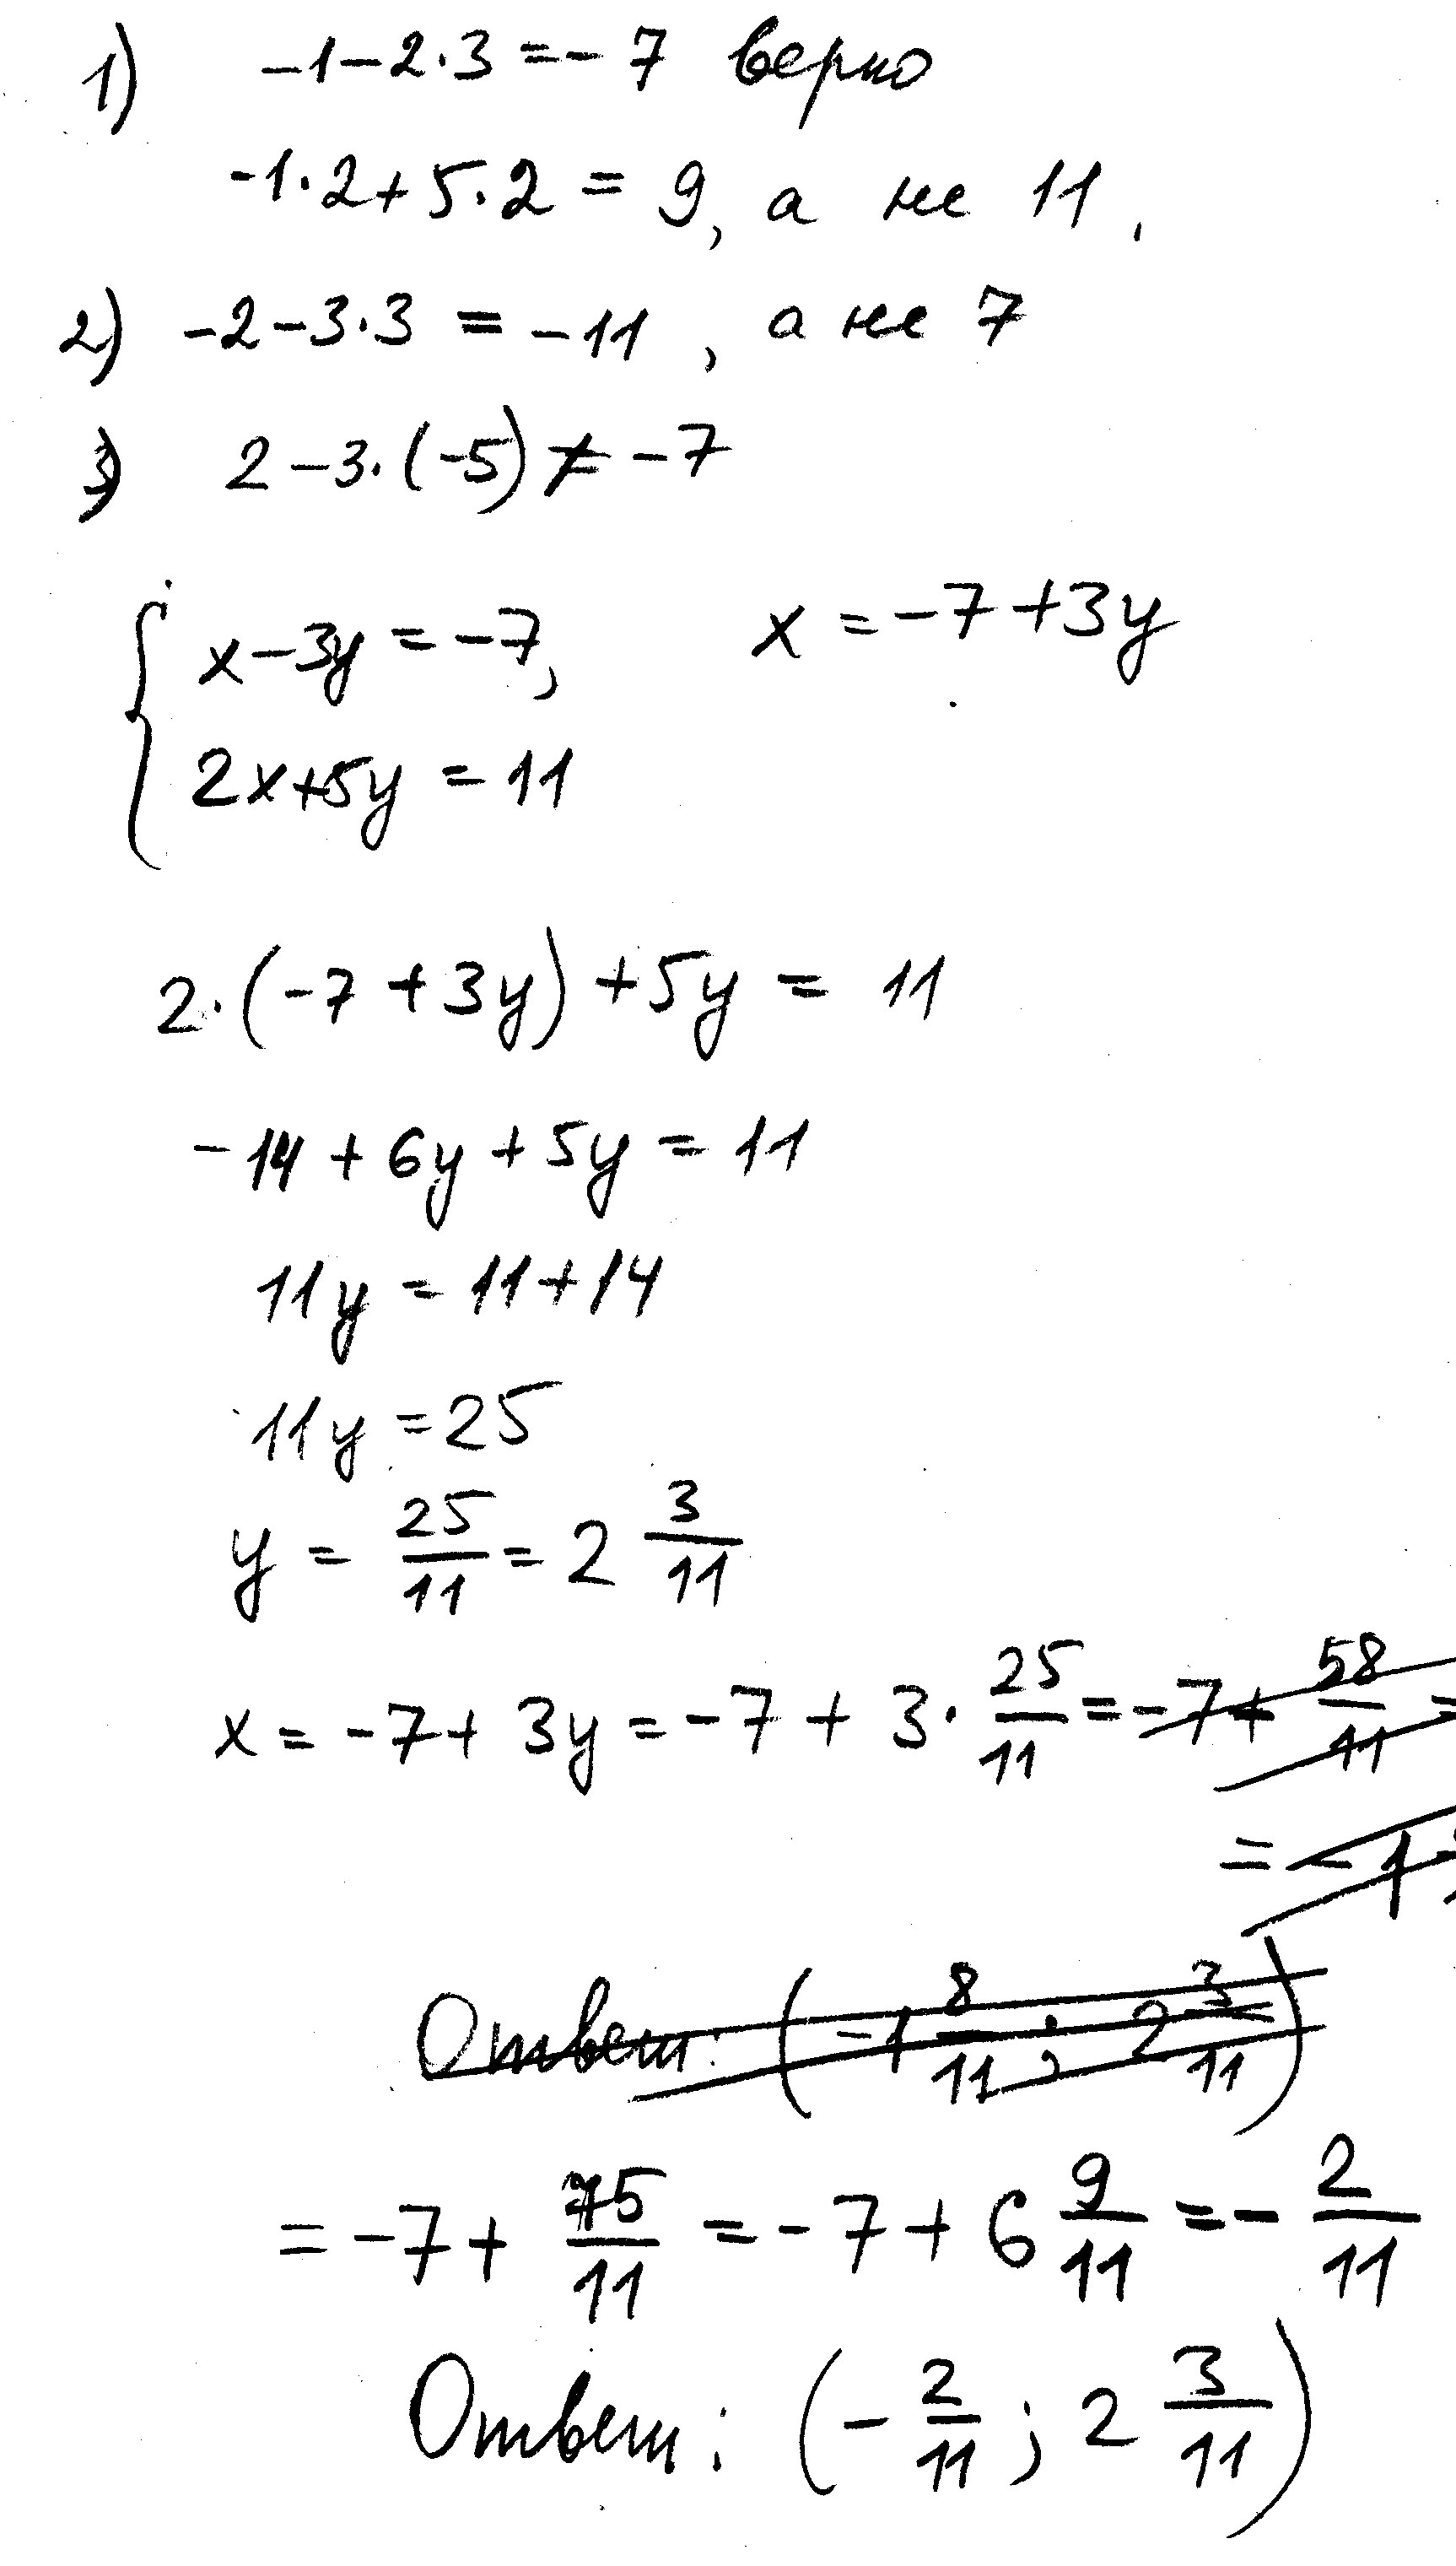 1) -1-2·3=-7 верно
-1·2+5·2=9, а не 11.
2) -2-3·3=-11, а не 7
3) 2-3·(-5)≠-7
x-3y=-7, x=-7+3y
2x+5y=11
2·(-7+3y)+5y=11
-14+6y+5y=11
11y=11+14
11y=25
y=25/11=2 3/11
x=-7+3y=-7+3·25/11=-7+58/11=
=-1
Ответ: (-1 8/11; 2 3/11)
=-7+75/11=-7+6 9/11=-2/11
Ответ: (-2/11; 2 3/11)